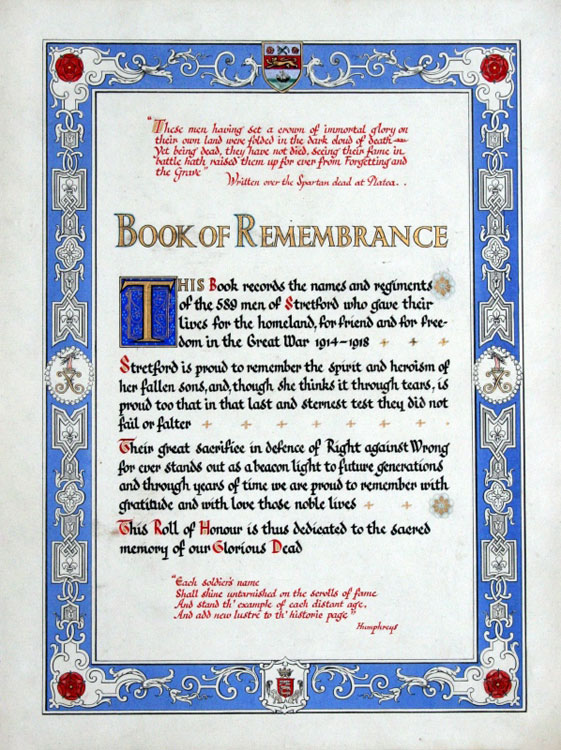 "These men having set a crown of immortal glory on
their own land were folded in the dark cloud of death—
Yet being dead, they have not died, seeing their fame in
battle hath raised them up for ever from Forgetting and
the Grave"
Written over the Spartan dead at Platea. . .
BOOK OF REMEMBRANCE
THIS Book records the names and regiments
of the 589 men of Stretford who gave their
lives for the homeland, for friend and for free-
dom in the Great War 1914-1918
Stretford is proud to remember the spirit and heroism of
her fallen sons, and, though she thinks it through tears, is
proud too that in that last and sternest test they did not
fail or falter
Their great sacrifice in defence of Right against Wrong
for ever stands out as a beacon light to future generations
and through years of time we are proud to remember with
gratitude and with love those noble lives
This Roll of Honour is thus dedicated to the sacred
memory of our Glorious Dead
"Each soldier's name
Shall shine untarnished on the scrolls of fame
And stand th' example of each distant age,
And add new lustre to th' historic page"
Humphreys